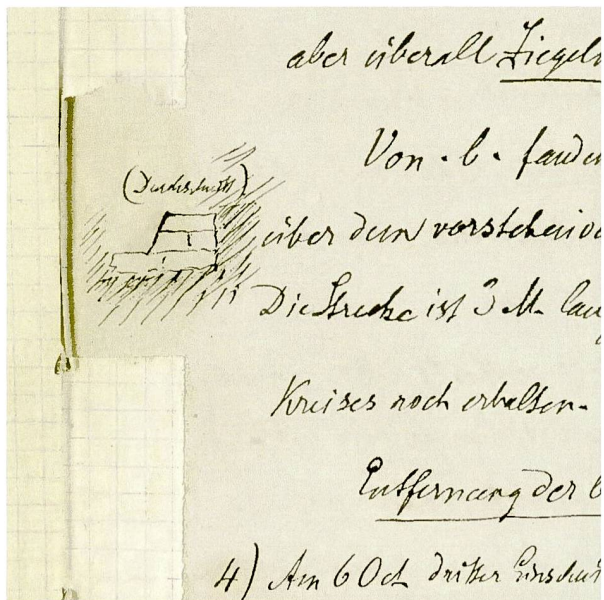 aber überall Ziegel
(Durchschnitt)
Von · b · fanden
über dem vorstehend
Die Strecke ist 3 M. lan
Kreises noch erhalten.
Entfernung der b
4) Am 6 Oct dritter Einschni